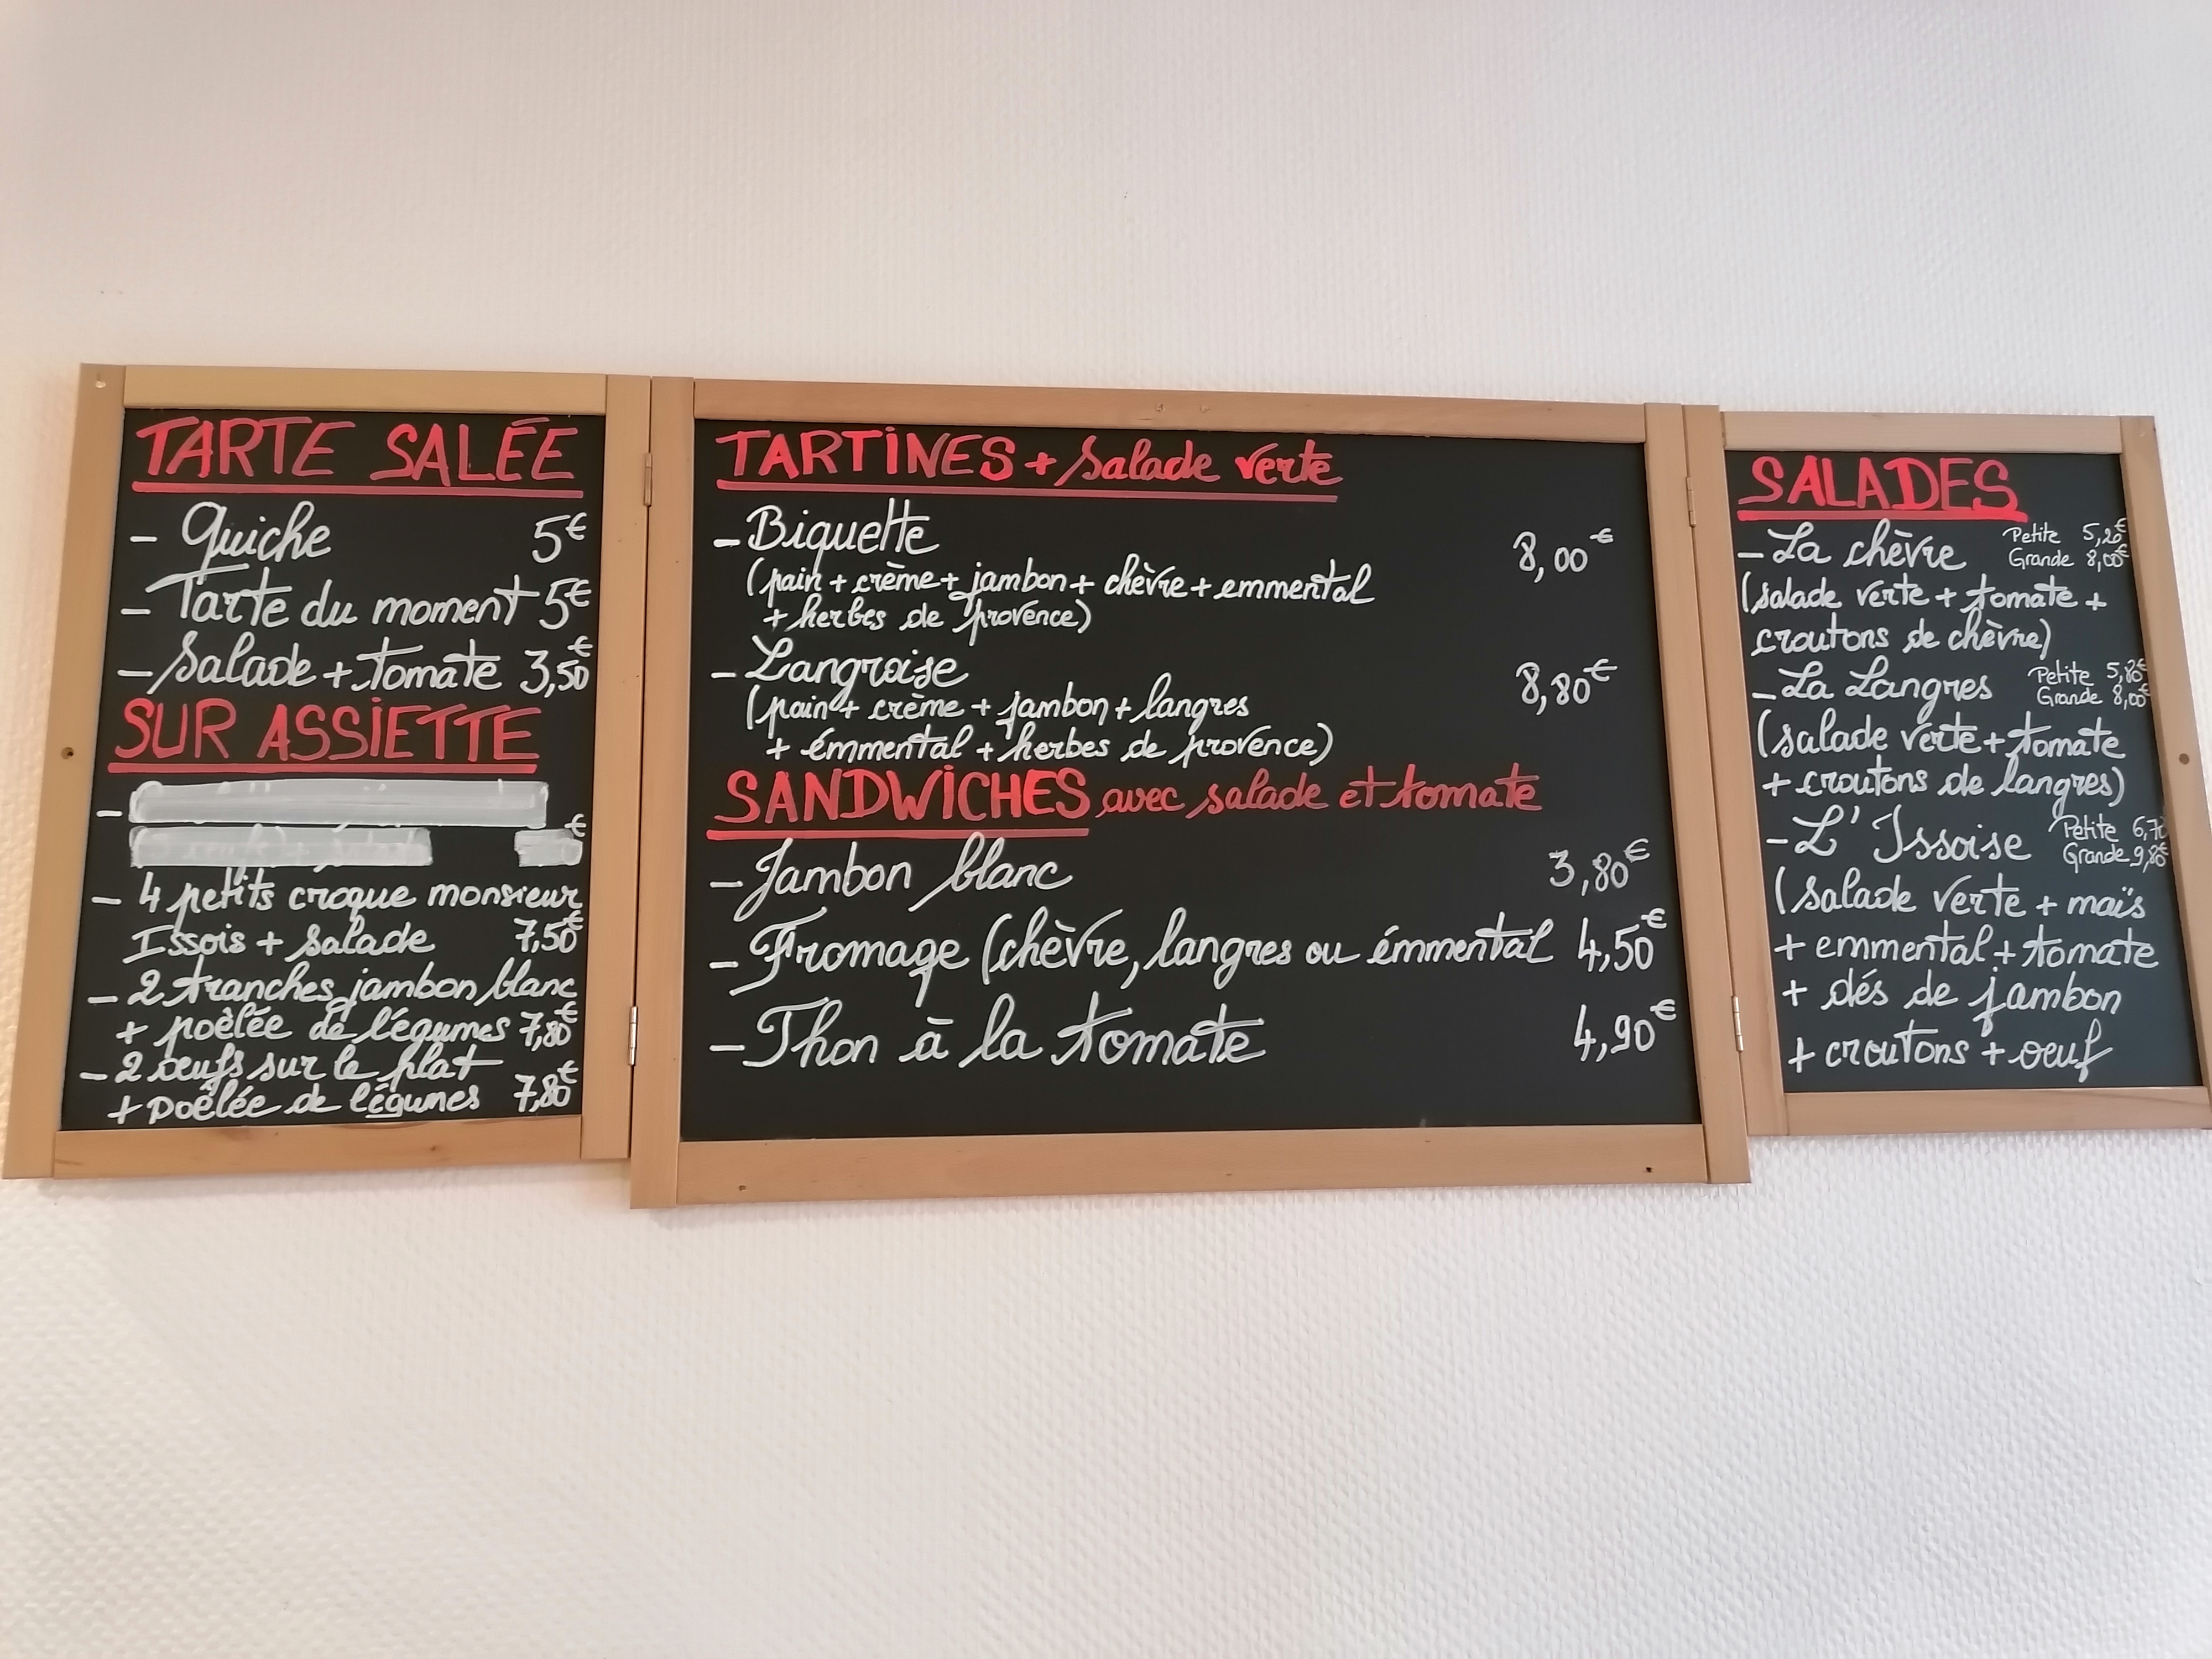 TARTE SALÉE
- Quiche 5€
- Tarte du moment 5€
- Salade + tomate 3,50€
SUR ASSIETTE
- 4 petits croque monsieur
Issois + salade 7,50€
- 2 tranches jambon blanc
+ poèlée de légumes 7,80€
- 2 œufs sur le plat
+ poêlée de légumes 7,80€
TARTINES + salade verte
- Biquette 8,00€
(pain + crème + jambon + chèvre + emmental
+ herbes de provence)
- Langroise 8,80€
(pain + crème + jambon + langres
+ émmental + herbes de provence)
SANDWICHES avec salade et tomate
- Jambon blanc 3,80€
- Fromage (chèvre, langres ou émmental 4,50€
- Thon à la tomate 4,90€
SALADES
- La chèvre Petite 5,20€
Grande 8,00€
(salade verte + tomate +
croutons de chèvre)
- La Langres Petite 5,80€
Grande 8,00€
(salade verte + tomate
+ croutons de langres)
- L'Issoise Petite 6,70
Grande 9,80€
(salade verte + maïs
+ emmental + tomate
+ dés de jambon
+ croutons + oeuf